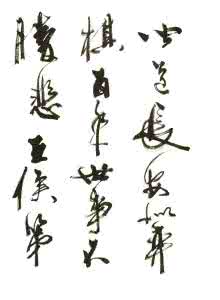 聞道長安似弈
棋百年世事不
勝悲王侯第